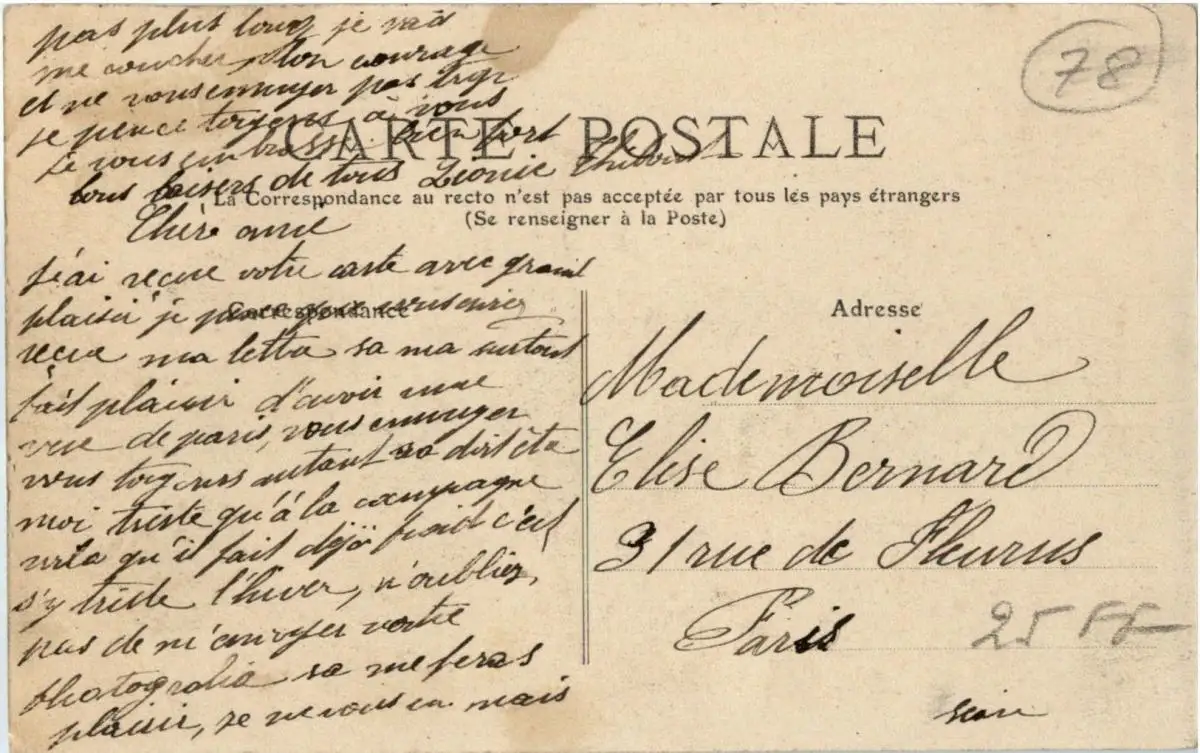 pas plus long je vais
me coucher, bon courage
et ne vous ennuyer pas trop
je pence toujours à vous
je vous embrasse bien fort
bons baisers de tous Léonie
78
CARTE POSTALE
La Correspondance au recto n'est pas acceptée par tous les pays étrangers
(Se renseigner à la Poste)
Chère amie
j'ai reçue votre carte avec grand
plaisir je pence que vous
Correspondance
reçue ma lettre sa ma surtout
fait plaisir d'avoir une
vue de paris, vous ennuyer
vous toujours autant sa doit être
moi triste qu'à la campagne
voila qu'il fait déjà froid c'est
s'y triste l'hiver, n'oubliez
pas de m'envoyer votre
photografie sa me feras
plaisir, je ne vous en mais
Adresse
Mademoiselle
Elise Bernard
31 rue de Fleurus
Paris
25 FF